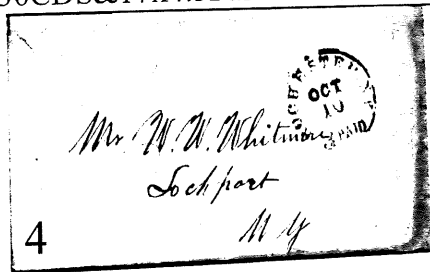 ROCHESTER N.Y.
OCT
10
PAID
Mr W. W. Whitmore
Lockport
N Y
4